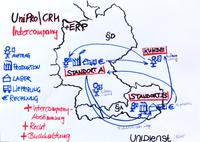 UniPro/CRM
+ERP
Intercompany
AUFTRAG
PRODUKTION
LAGER
LIEFERUNG
RECHNUNG
KUNDE
STANDORT A
STANDORT B
+ Intercompany
Abstimmung
+ Recht
+ Buchhaltung
UNIDIENST